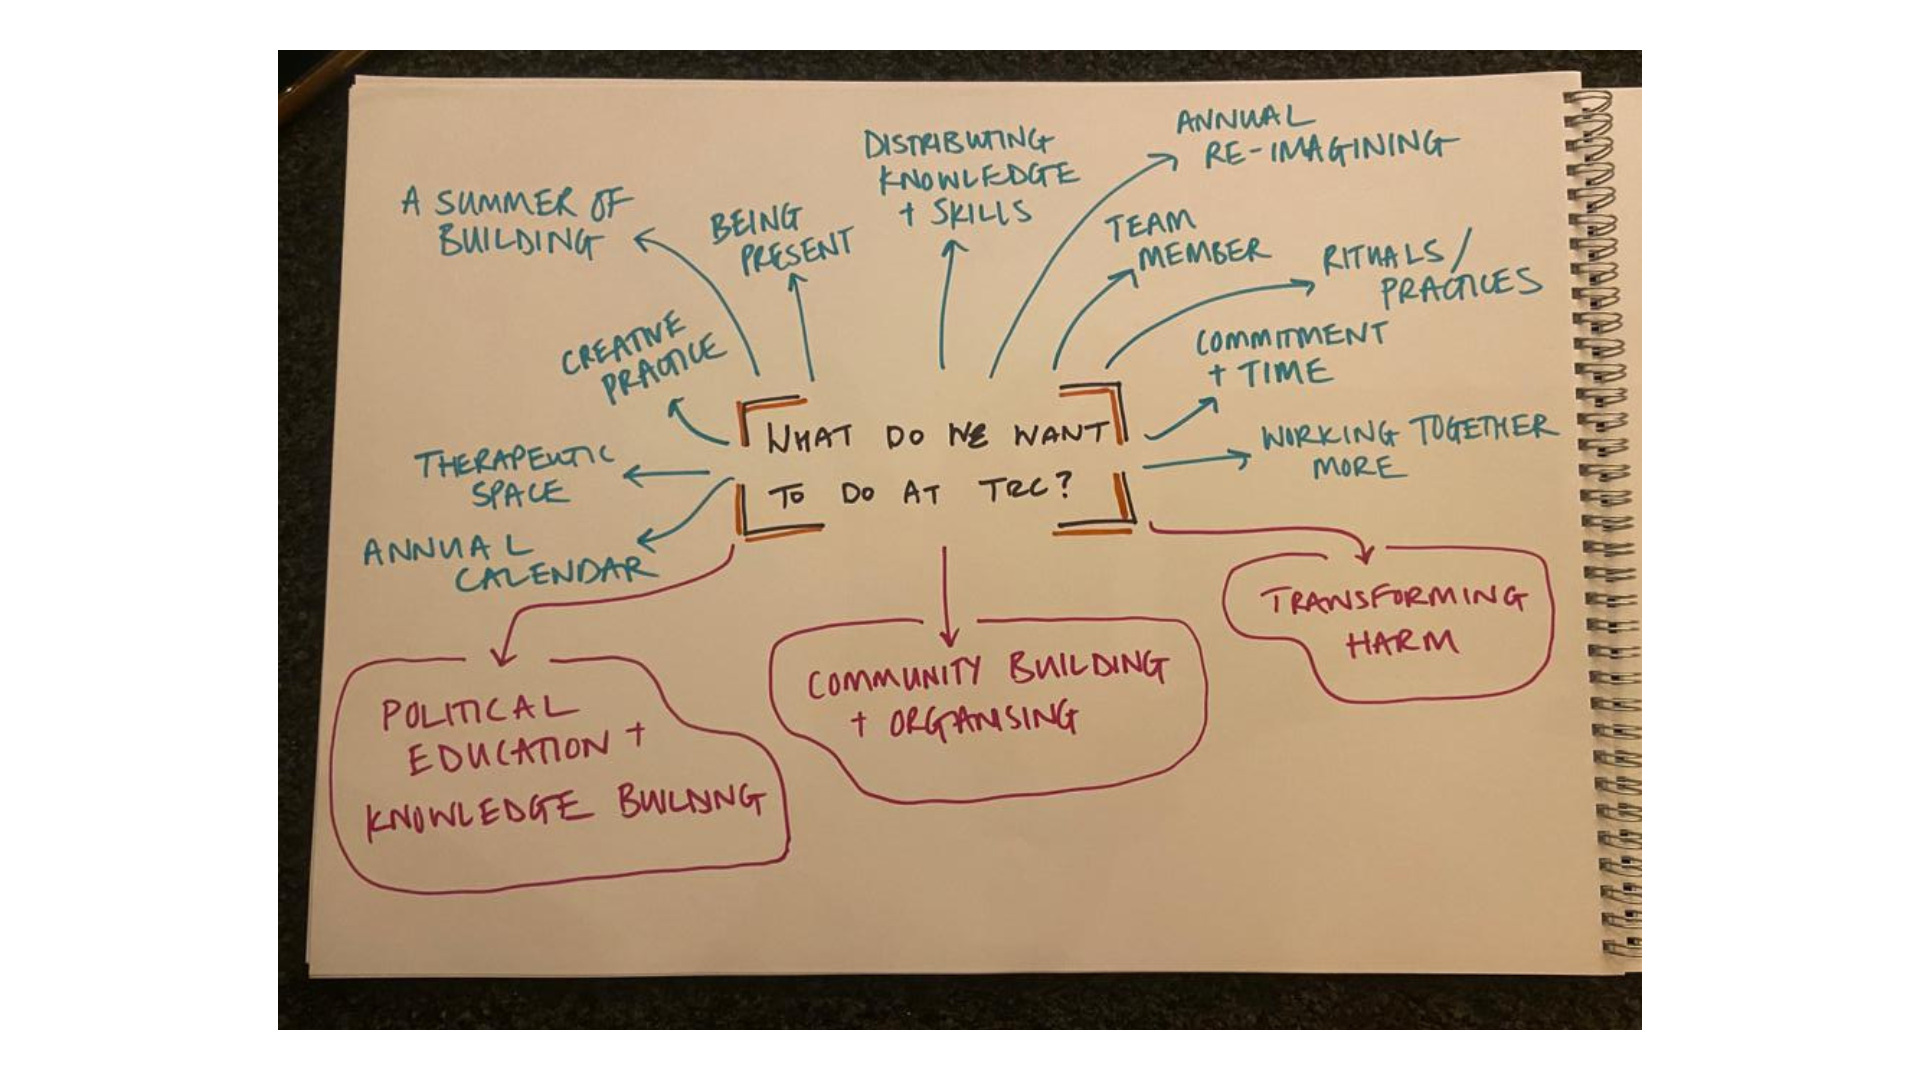 ANNUAL
RE-IMAGINING
DISTRIBUTING
KNOWLEDGE
+ SKILLS
A SUMMER OF
BUILDING
BEING
PRESENT
TEAM
MEMBER
RITUALS/
PRACTICES
CREATIVE
PRACTICE
COMMITMENT
+ TIME
WHAT DO WE WANT
TO DO AT TRC?
WORKING TOGETHER
MORE
THERAPEUTIC
SPACE
ANNUAL
CALENDAR
TRANSFORMING
HARM
COMMUNITY BUILDING
+ ORGANISING
POLITICAL
EDUCATION +
KNOWLEDGE BUILDING